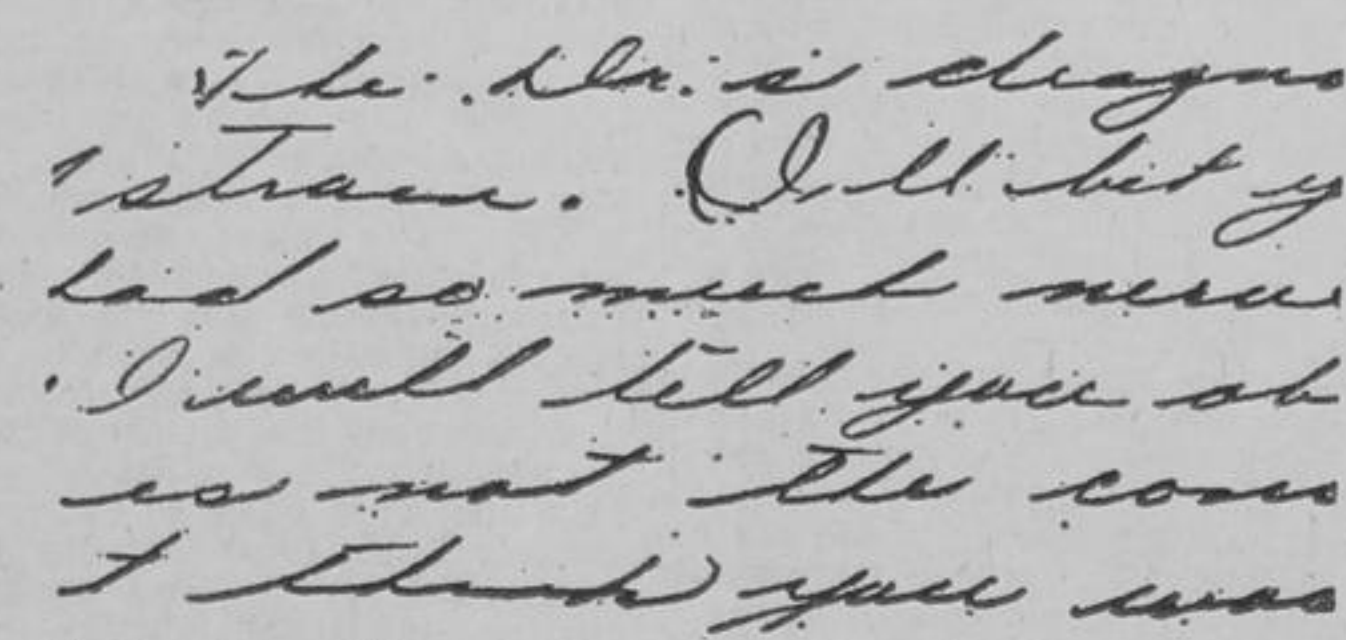 The Dr.'s diagno
'strain. I'll bet y
had so much nerv
I will tell you ab
is not the cons
t think you was